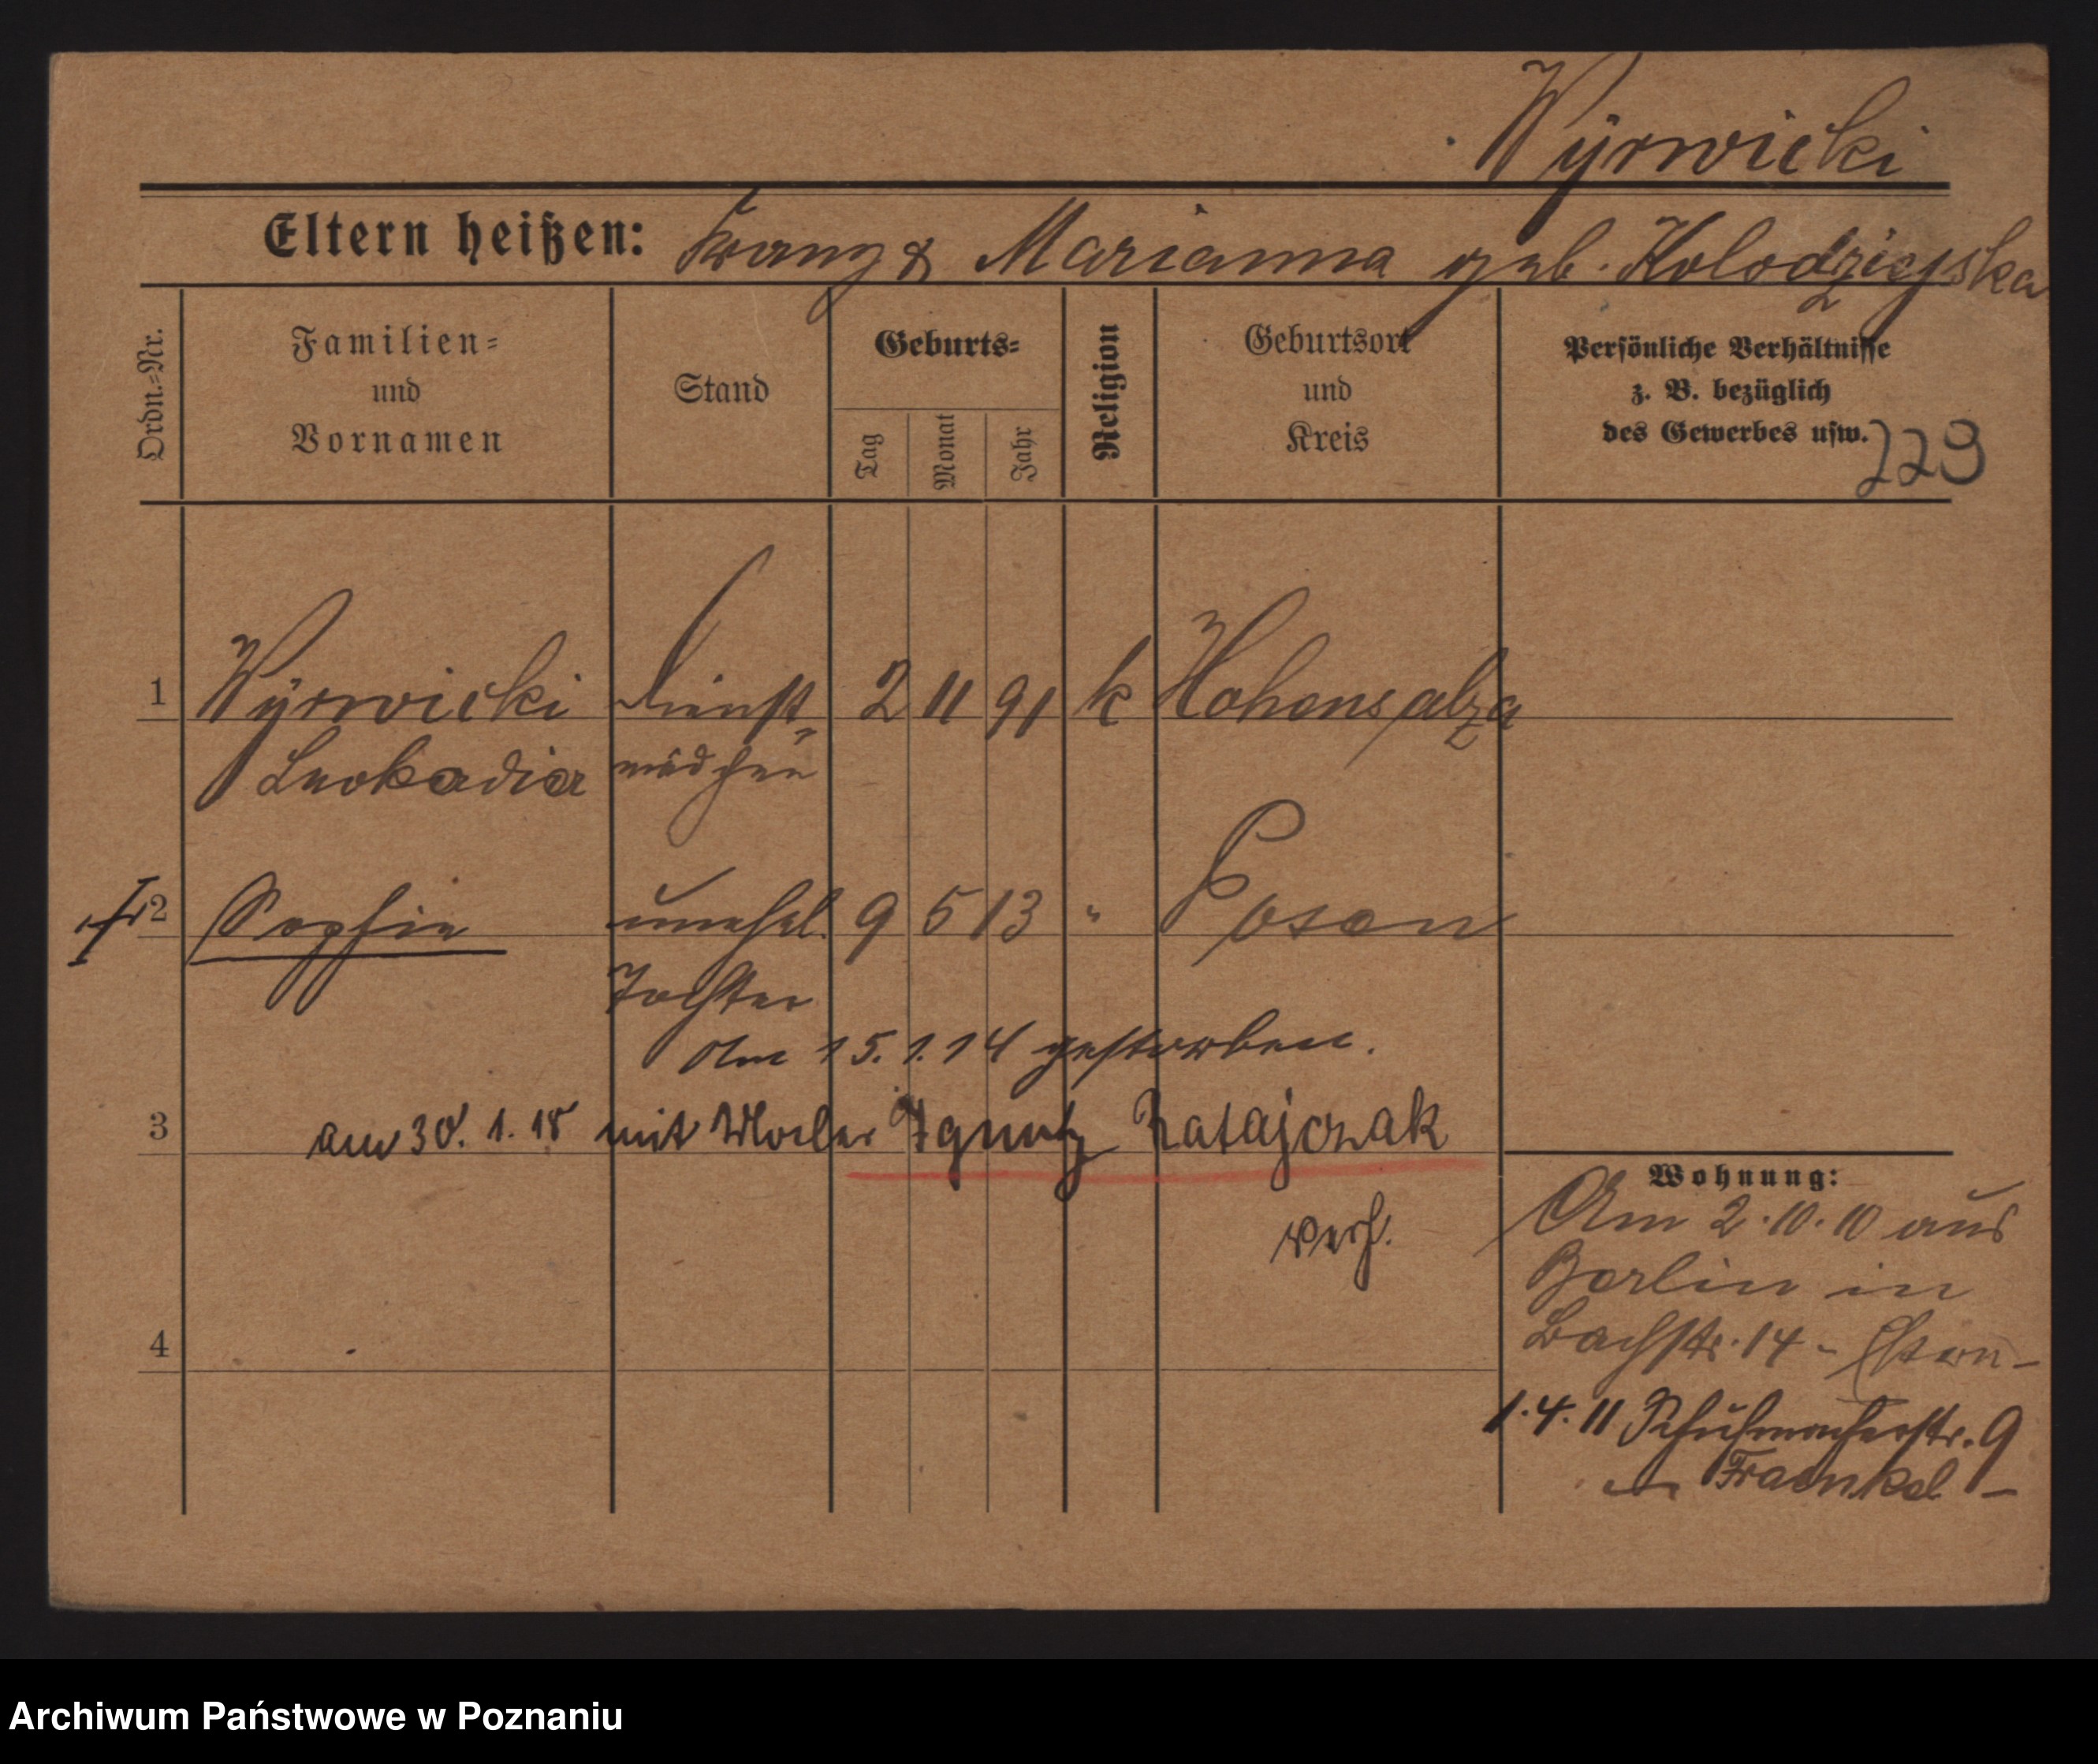 Wÿrwicki
Eltern heißen: Franz & Marianna geb. Kolodziejska
Ordn.-Nr.
Familien-
und
Vornamen
Stand
Geburts-
Tag
Monat
Jahr
Religion
Geburtsort
und
Kreis
Persönliche Verhältnisse
z. B. bezüglich
des Gewerbes usw.
229
1 Wÿrwicki Dienst- 2 11 91 k Hohensalza
Leokadia mädchen
2 Sophie unehel. 9 5 13 " Posen
Tochter
Am 15.1.14 gestorben.
3 am 30. 1. 18 mit Maler Ignatz Ratajczak
verh.
4
Wohnung:
Am 2.10.10 aus
Berlin in
Bachstr. 14 -
1.4.11 Schuhmacherstr. 9
Fraenkel -
Archiwum Państwowe w Poznaniu